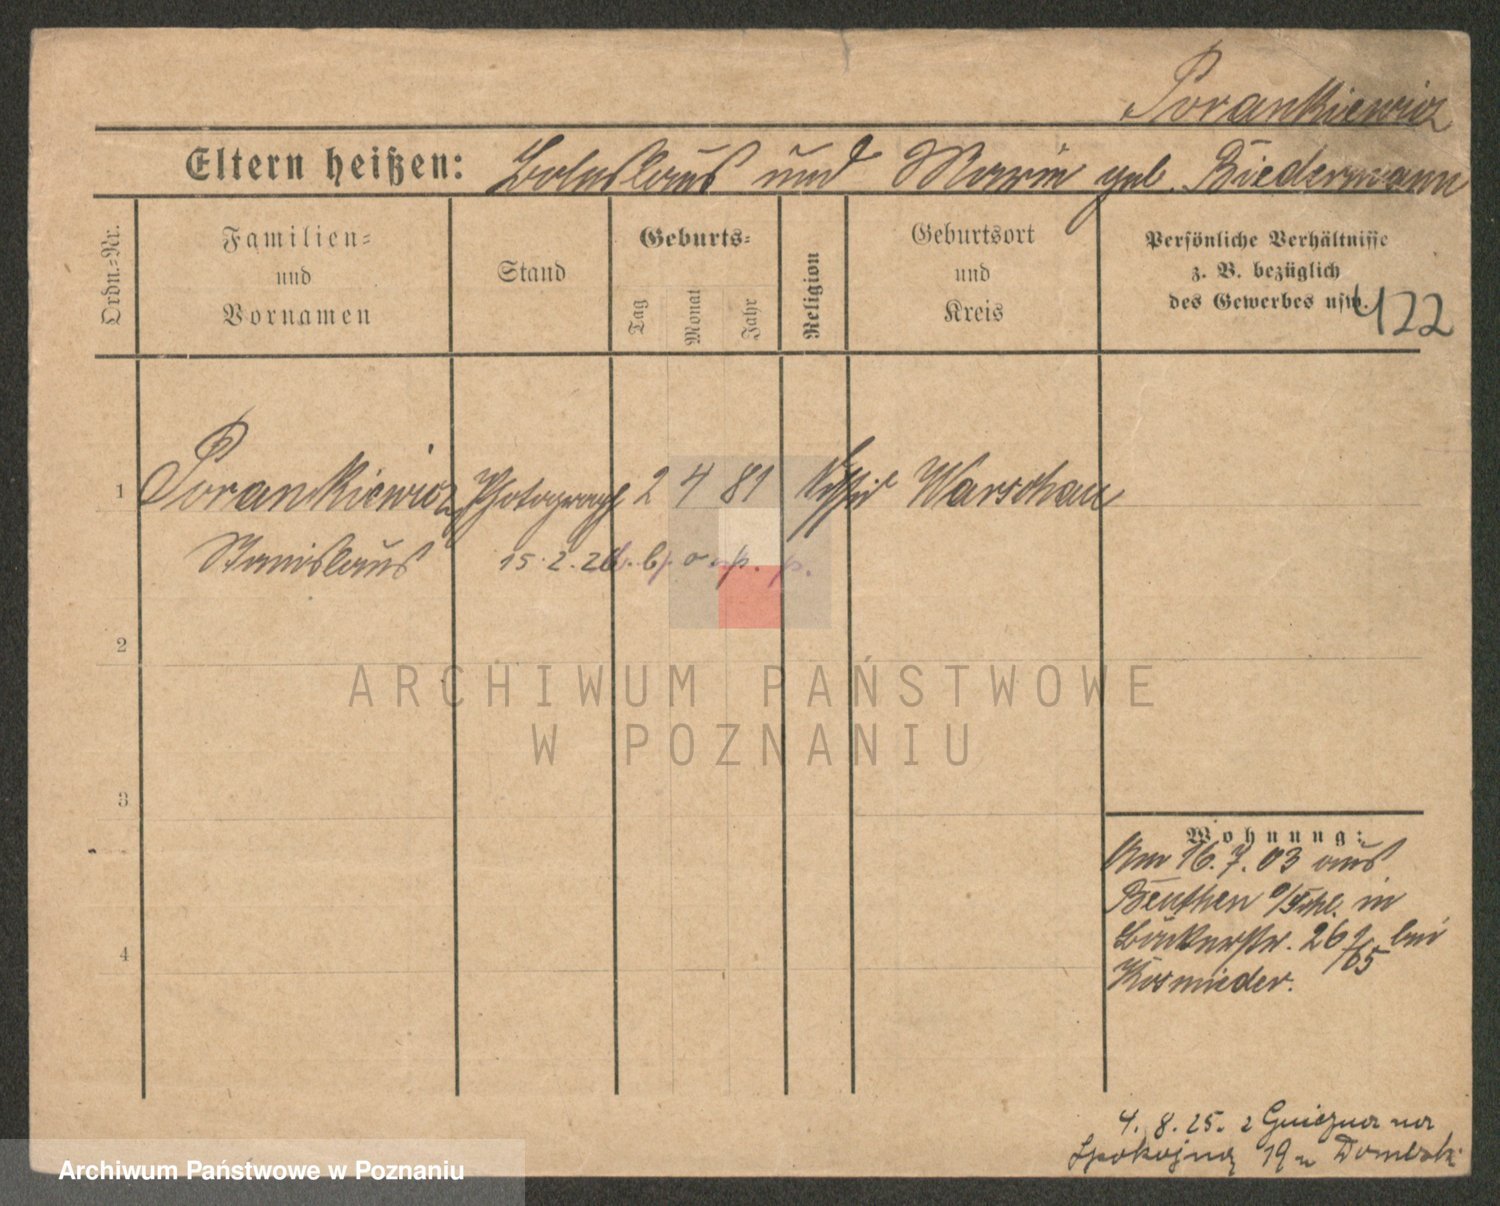 Porankiewicz
Eltern heißen: Boleslaus und Marie geb. Biedermann
Ordn.-Nr.
Familien-
und
Vornamen
Stand
Geburts-
Tag
Monat
Jahr
Religion
Geburtsort
und
Kreis
Persönliche Verhältnisse
z. B. bezüglich
des Gewerbes usw.
422
1 Porankiewicz Photograph 2 4 81 Warschau
Stanislaus 15.2.26
2
ARCHIWUM PAŃSTWOWE
W POZNANIU
3
4
Wohnung:
Am 16.7.03 aus
Beuthen o/Schl. in
Bäckerstr. 26 bei
Kosmieder.
4. 8. 25. z Gniezna na
Spokojną 19 u Dombski
Archiwum Państwowe w Poznaniu